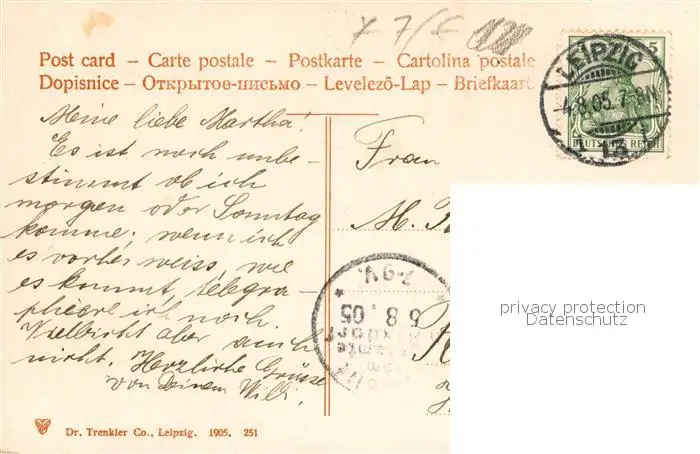 Post card – Carte postale – Postkarte – Cartolina postale
Dopisnice – Открытое-письмо – Levelező-Lap – Briefkaart.
Meine liebe Martha!
Es ist noch unbe-
stimmt ob ich
morgen oder Sonntag
komme; wenn ich
es vorher weiss, wie
es kommt, telegra-
phiere ich noch.
Vielleicht aber auch
nicht. Herzliche Grüsse
von Deinem Willi.
Frau
M.
LEIPZIG
4.8.05. 7-8N
13
5
DEUTSCHES REICH
7-9V.
5 8.05
privacy protection
Datenschutz
Dr. Trenkler Co., Leipzig. 1905. 251